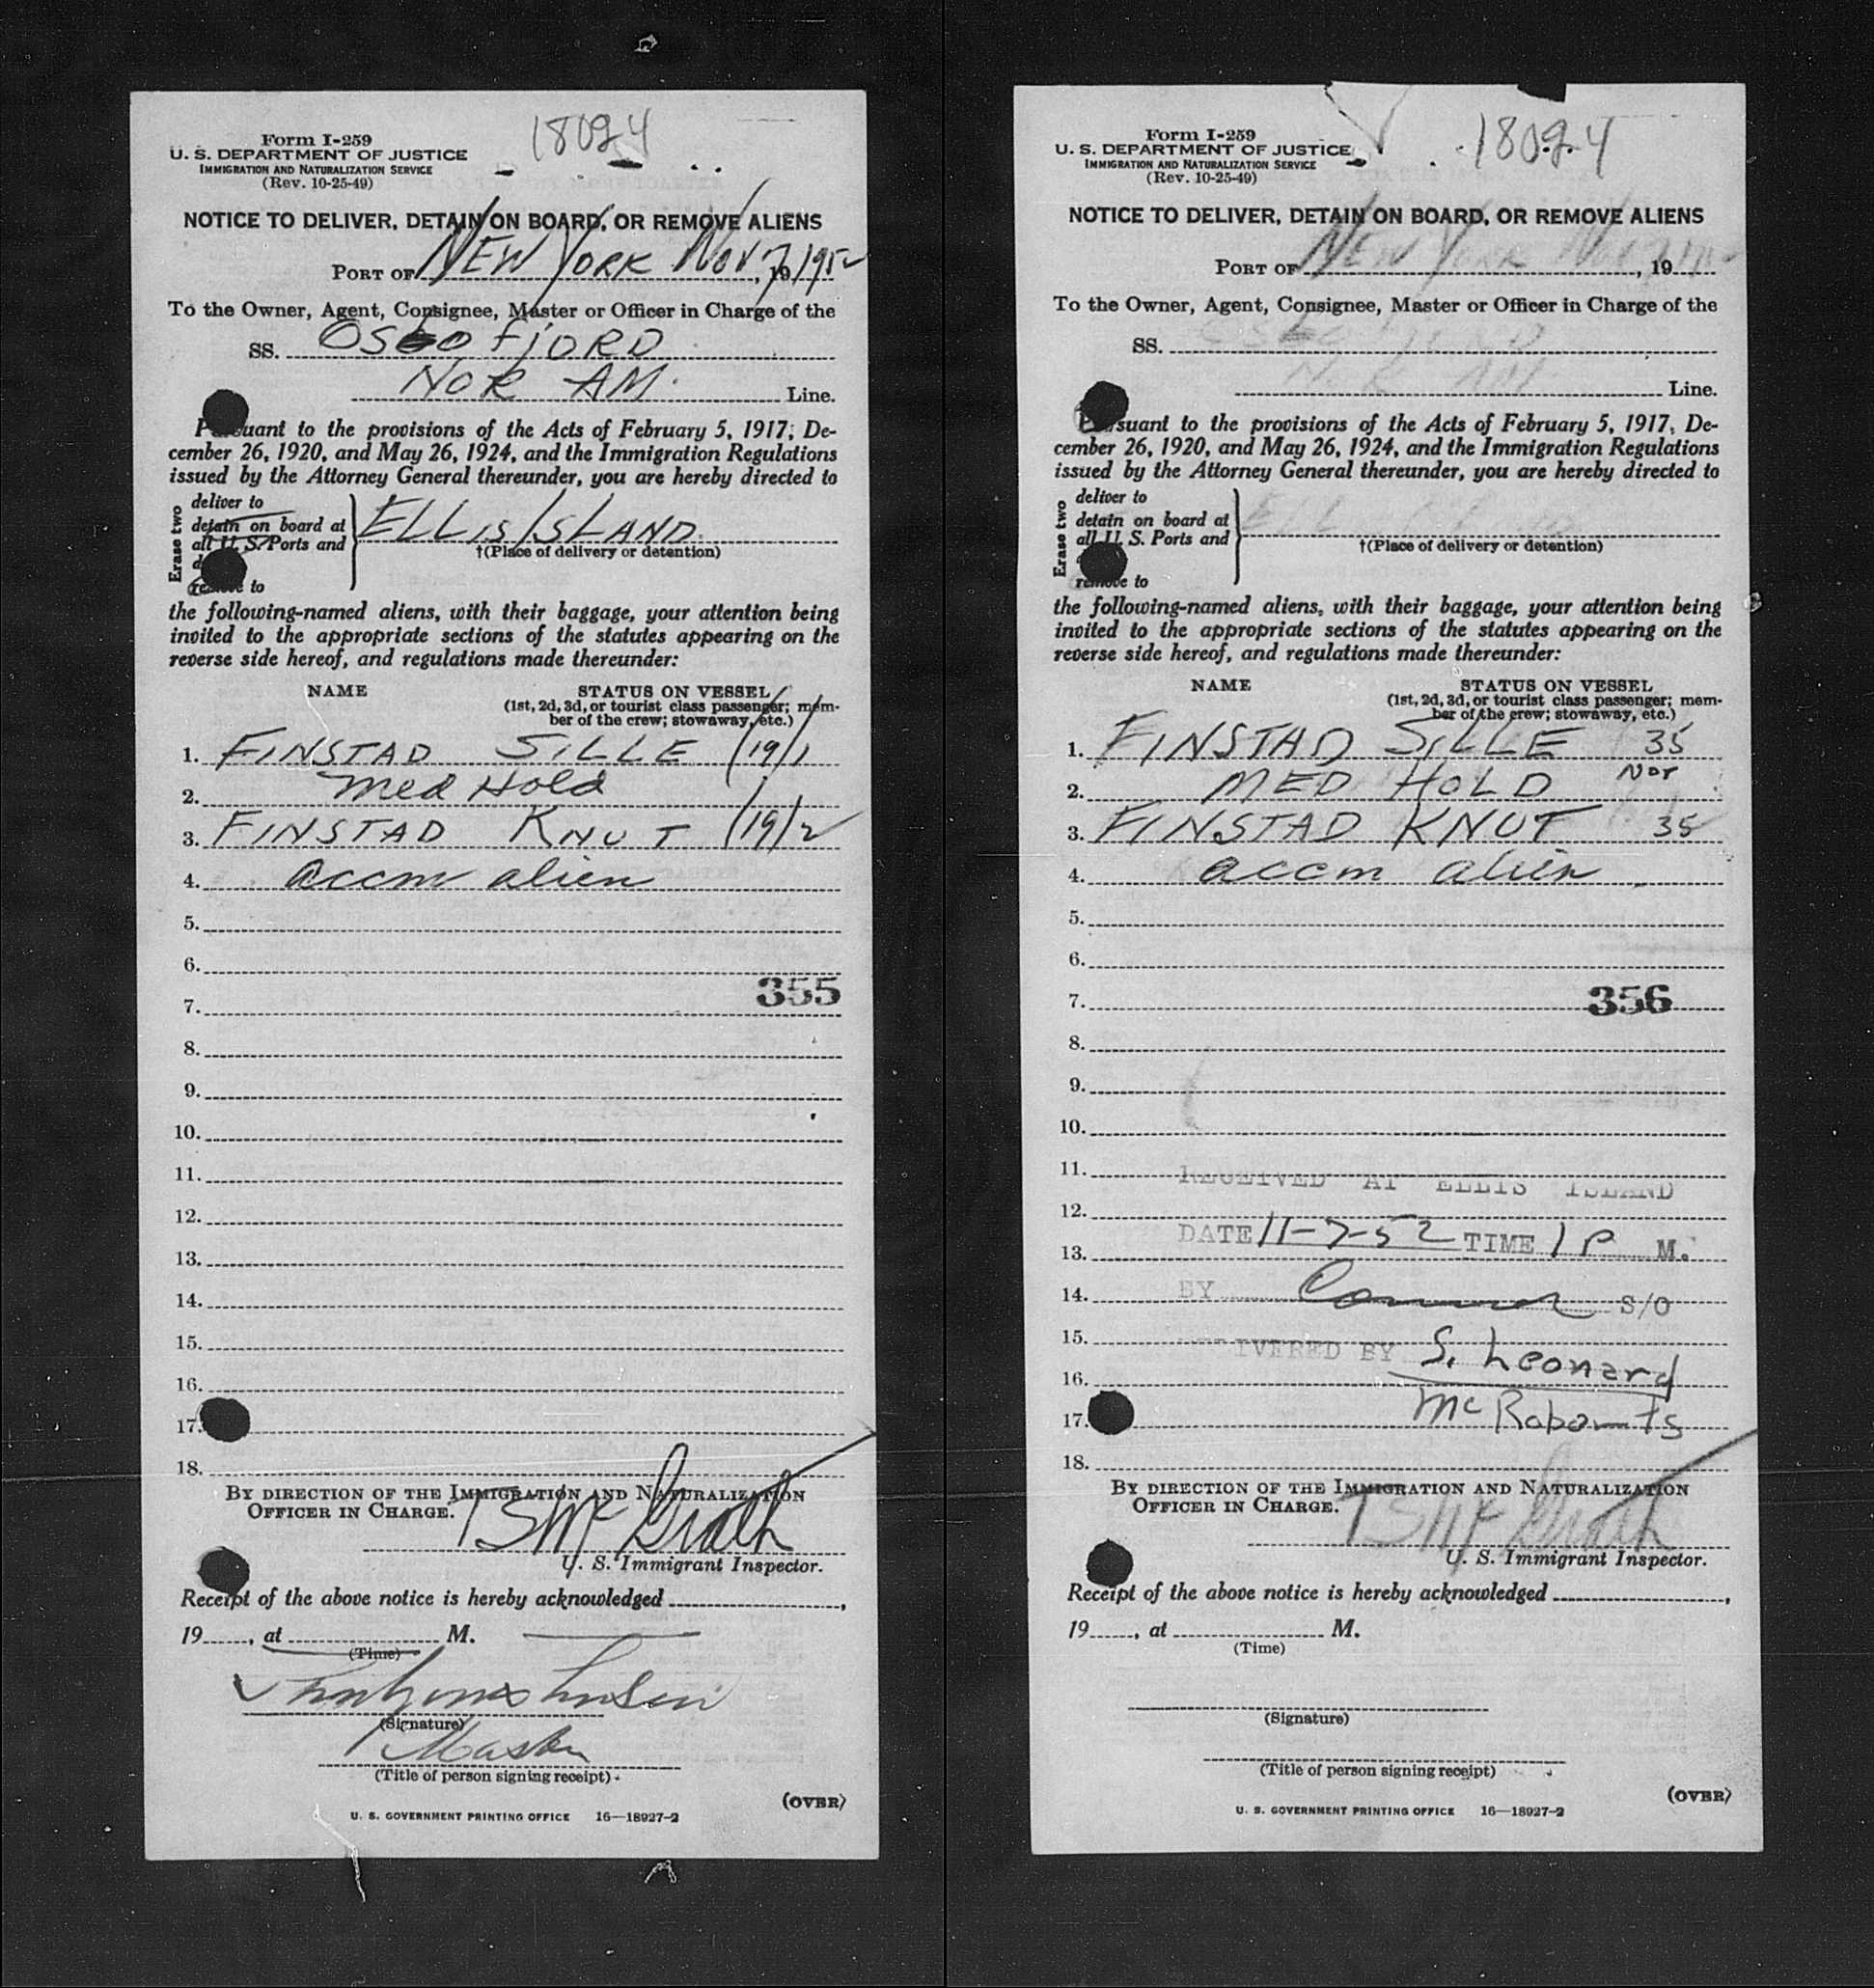 18094
Form I-259
U. S. DEPARTMENT OF JUSTICE
IMMIGRATION AND NATURALIZATION SERVICE
(Rev. 10-25-49)
NOTICE TO DELIVER, DETAIN ON BOARD, OR REMOVE ALIENS
PORT OF NEW YORK NOV 7, 19 1952
To the Owner, Agent, Consignee, Master or Officer in Charge of the
SS. OSLOFJORD
NOR AM. Line.
Pursuant to the provisions of the Acts of February 5, 1917, De-
cember 26, 1920, and May 26, 1924, and the Immigration Regulations
issued by the Attorney General thereunder, you are hereby directed to
Erase two
deliver to
detain on board at
all U. S. Ports and
remove to
ELLIS ISLAND
†(Place of delivery or detention)
the following-named aliens, with their baggage, your attention being
invited to the appropriate sections of the statutes appearing on the
reverse side hereof, and regulations made thereunder:
NAME STATUS ON VESSEL
(1st, 2d, 3d, or tourist class passenger; mem-
ber of the crew; stowaway, etc.)
1. FINSTAD SILLE (19/1
2. Med Hold
3. FINSTAD KNUT (19/2
4. accm alien
5.
6.
355
7.
8.
9.
10.
11.
12.
13.
14.
15.
16.
17.
18.
BY DIRECTION OF THE IMMIGRATION AND NATURALIZATION
OFFICER IN CHARGE.
McGrath
U. S. Immigrant Inspector.
Receipt of the above notice is hereby acknowledged ,
19 , at M.
(Time)
(Signature)
Master
(Title of person signing receipt)
(OVER)
U. S. GOVERNMENT PRINTING OFFICE 16—18927-2
18094
Form I-259
U. S. DEPARTMENT OF JUSTICE
IMMIGRATION AND NATURALIZATION SERVICE
(Rev. 10-25-49)
NOTICE TO DELIVER, DETAIN ON BOARD, OR REMOVE ALIENS
PORT OF NEW YORK NOV 7 , 19
To the Owner, Agent, Consignee, Master or Officer in Charge of the
SS. OSLOFJORD
NOR AM Line.
Pursuant to the provisions of the Acts of February 5, 1917, De-
cember 26, 1920, and May 26, 1924, and the Immigration Regulations
issued by the Attorney General thereunder, you are hereby directed to
Erase two
deliver to
detain on board at
all U. S. Ports and
remove to
†(Place of delivery or detention)
the following-named aliens, with their baggage, your attention being
invited to the appropriate sections of the statutes appearing on the
reverse side hereof, and regulations made thereunder:
NAME STATUS ON VESSEL
(1st, 2d, 3d, or tourist class passenger; mem-
ber of the crew; stowaway, etc.)
1. FINSTAD SILLE 35
2. MED HOLD Nor
3. FINSTAD KNUT 35
4. accm alien
5.
6.
7. 356
8.
9.
10.
11.
RECEIVED AT ELLIS ISLAND
12.
DATE 11-7-52 TIME 1 P M.
13.
14. BY S/O
15.
IVERED BY S. Leonard
16.
17. McRoberts
18.
BY DIRECTION OF THE IMMIGRATION AND NATURALIZATION
OFFICER IN CHARGE.
McGrath
U. S. Immigrant Inspector.
Receipt of the above notice is hereby acknowledged ,
19 , at M.
(Time)
(Signature)
(Title of person signing receipt)
(OVER)
U. S. GOVERNMENT PRINTING OFFICE 16—18927-2